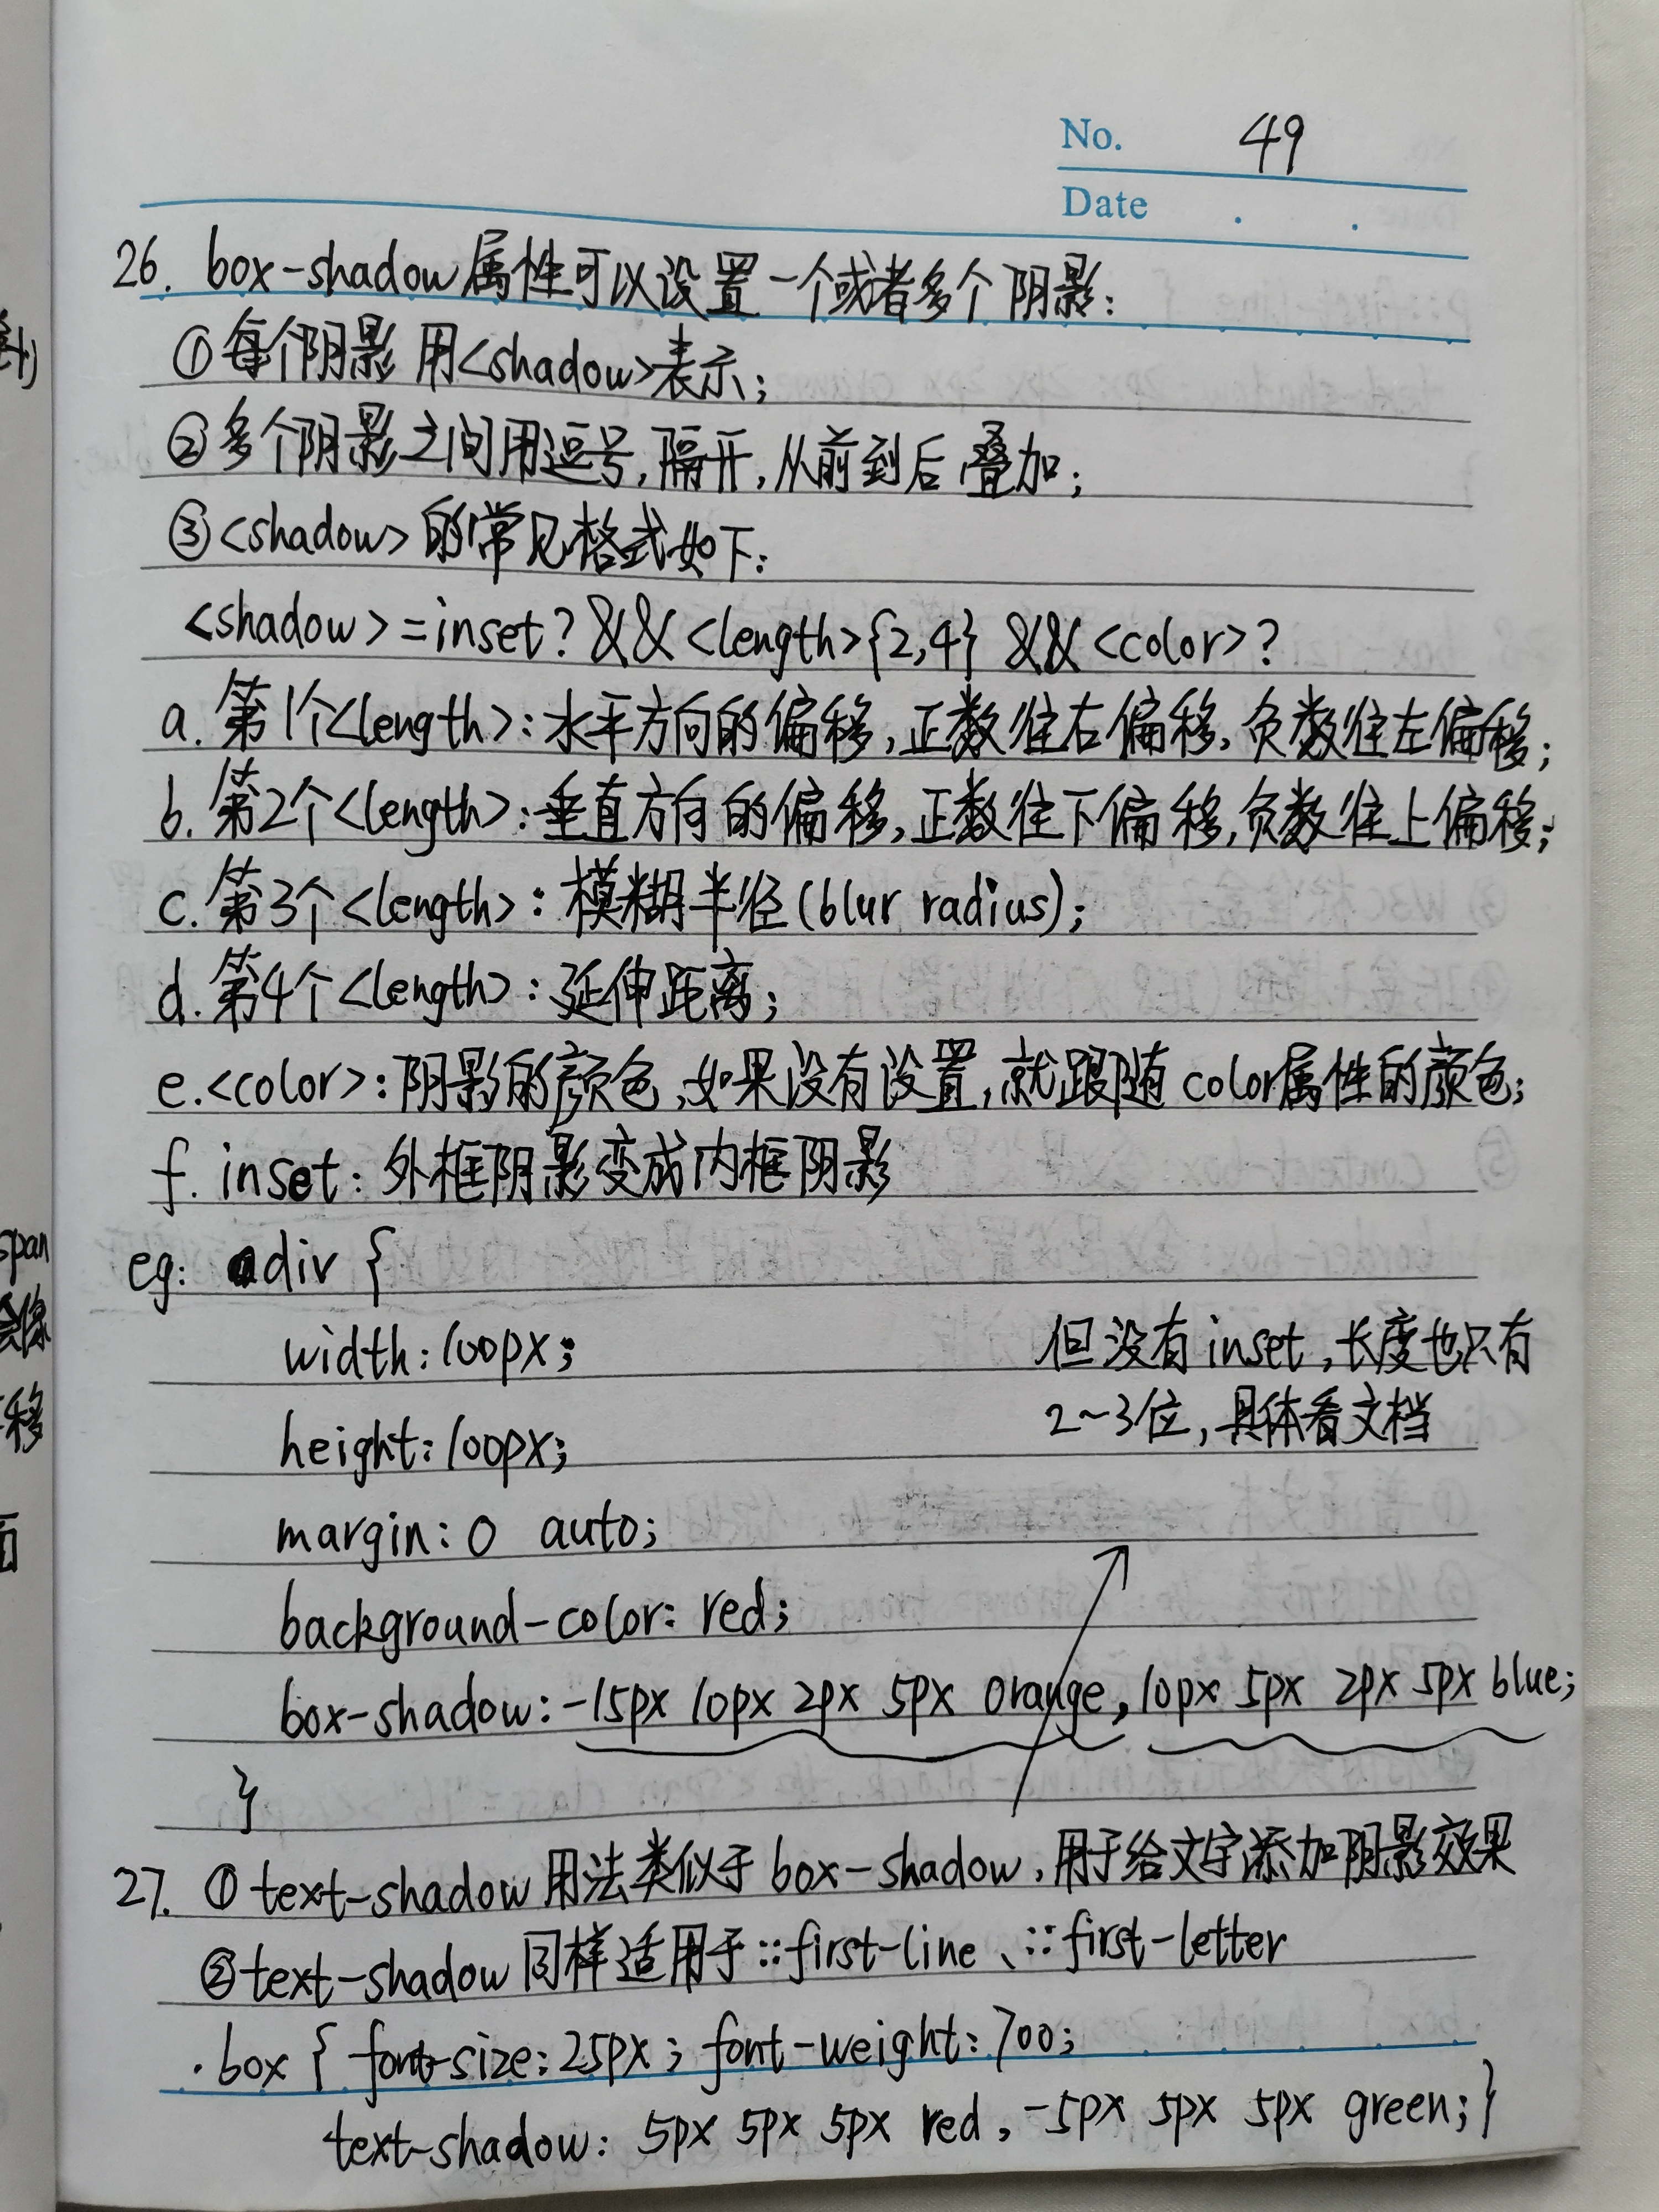 No. 49
Date . .
26. box-shadow属性可以设置一个或者多个阴影:
①每个阴影 用<shadow>表示;
②多个阴影之间用逗号,隔开,从前到后叠加;
③<shadow>的常见格式如下:
<shadow>=inset? && <length>{2,4} && <color>?
a. 第1个<length>:水平方向的偏移,正数往右偏移,负数往左偏移;
b. 第2个<length>:垂直方向的偏移,正数往下偏移,负数往上偏移;
c. 第3个<length>:模糊半径(blur radius);
d. 第4个<length>:延伸距离;
e.<color>:阴影的颜色,如果没有设置,就跟随color属性的颜色;
f. inset: 外框阴影变成内框阴影
eg: div {
width:100px;
但没有inset,长度也只有
height:100px;
2~3位,具体看文档
margin:0 auto;
background-color: red;
box-shadow:-15px 10px 2px 5px orange,10px 5px 2px 5px blue;
}
27. ①text-shadow用法类似于box-shadow,用于给文字添加阴影效果
②text-shadow同样适用于::first-line、::first-letter
.box { font-size:25px; font-weight:700;
text-shadow: 5px 5px 5px red, -5px 5px 5px green;}
span
移